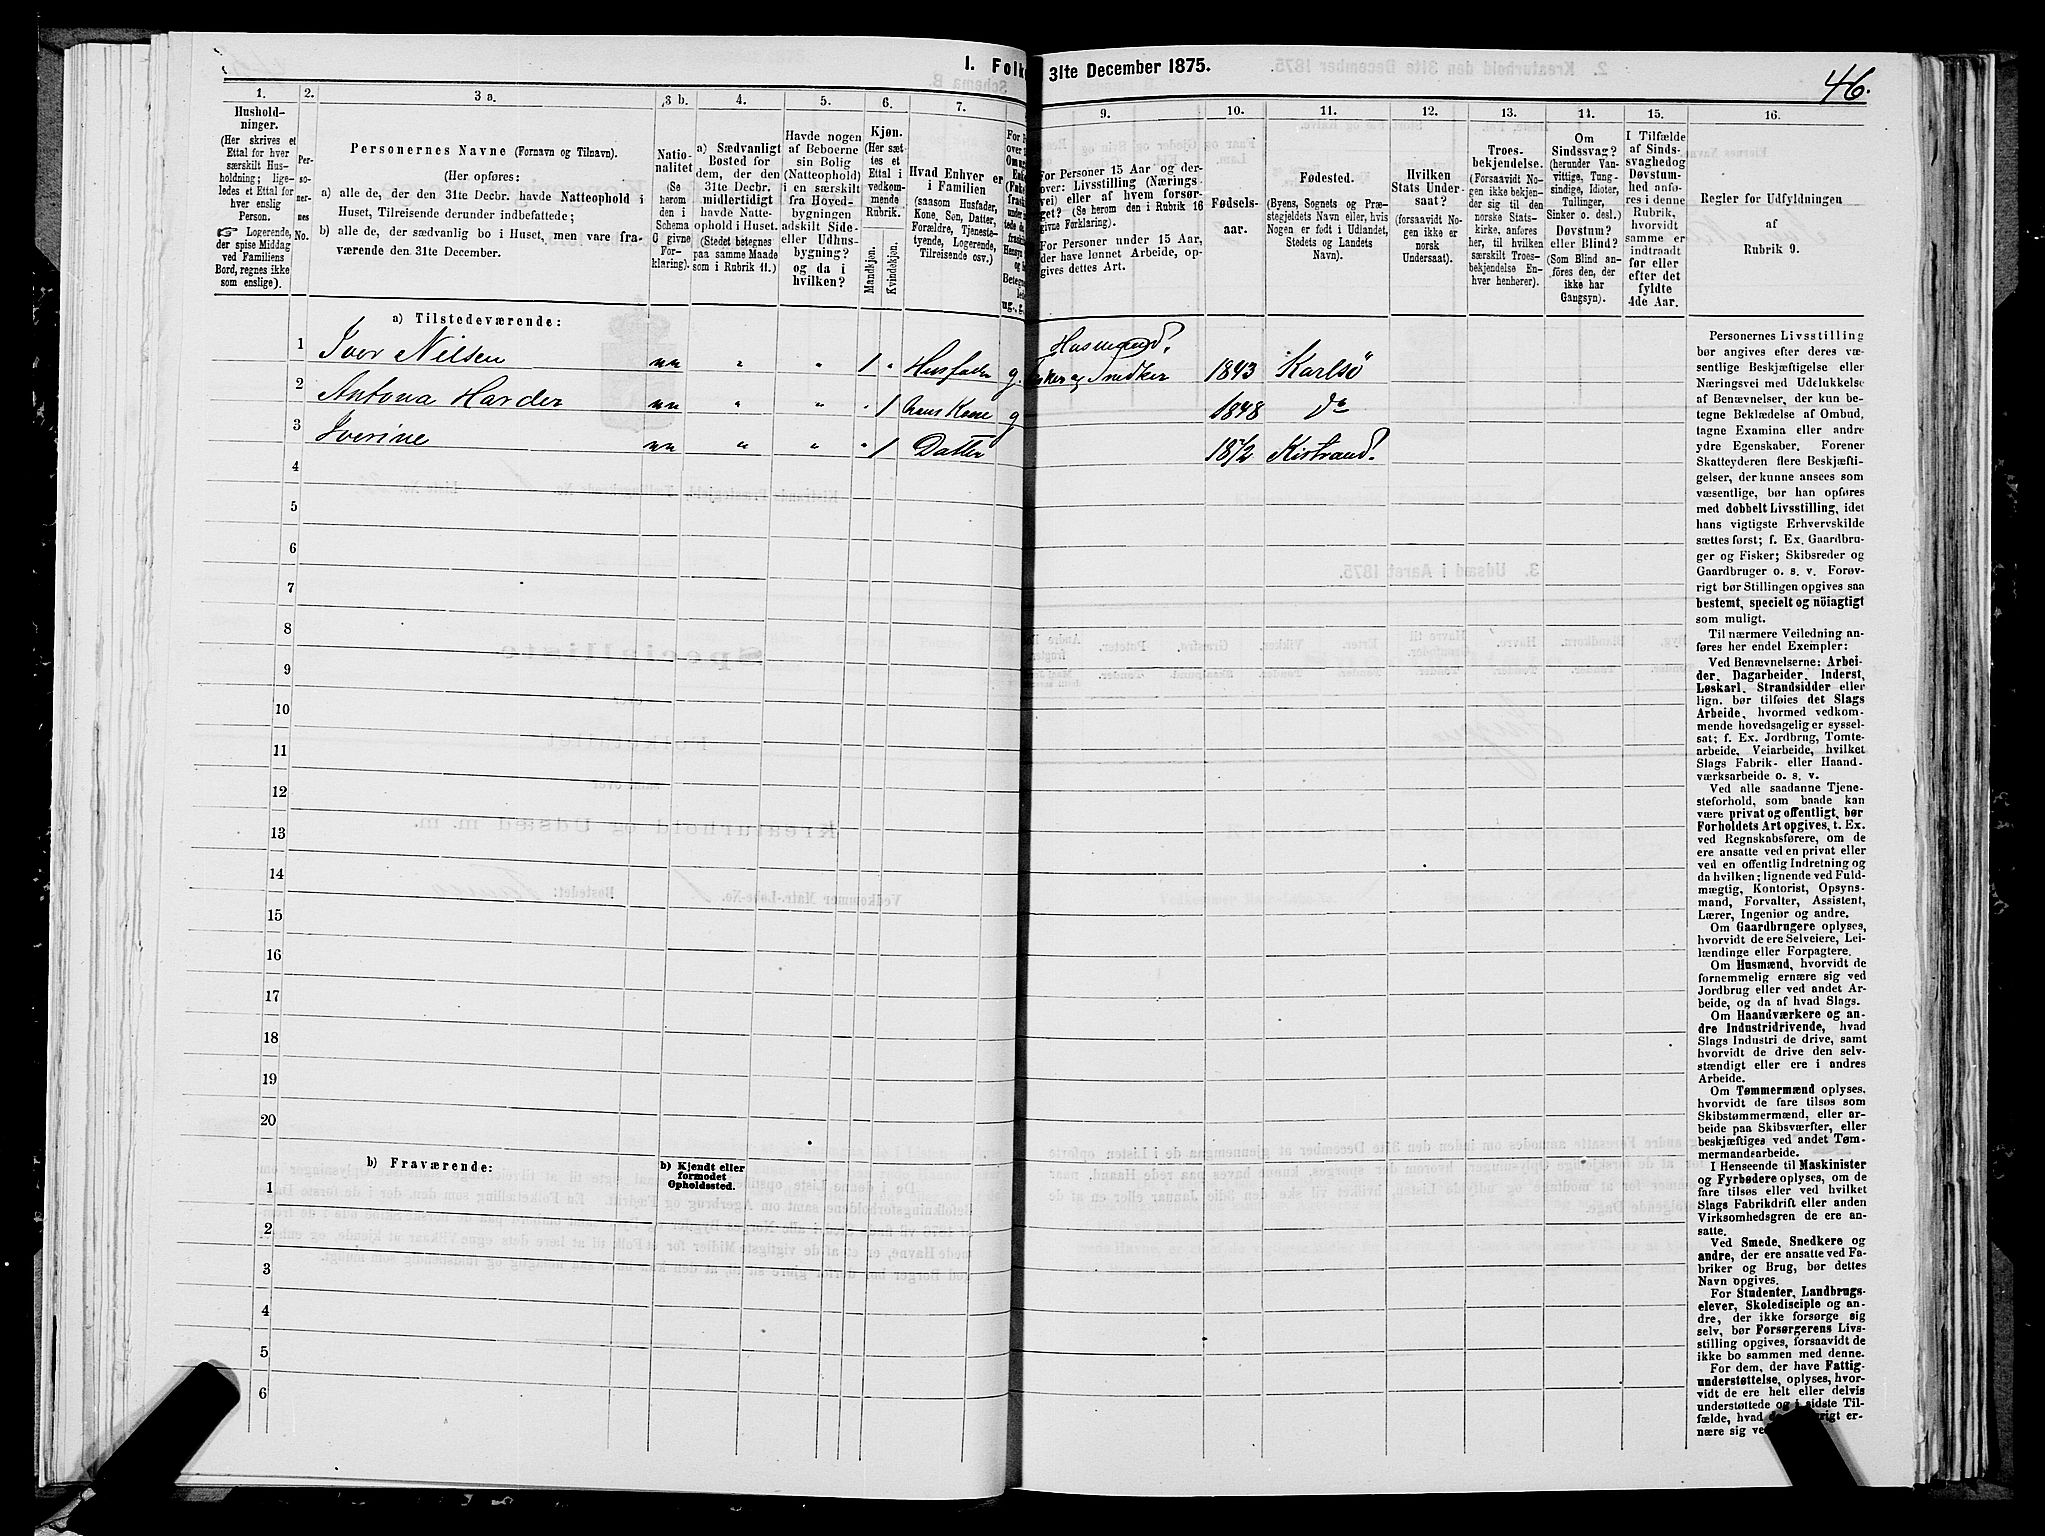 I. Folke
31te December 1875.
46.
1.
2.
3 a.
3 b.
4.
5.
6.
7.
9.
10.
11.
12.
13.
14.
15.
16.
Hushold-
ninger.
(Her skrives et
Ettal for hver
særskilt Hus-
holdning; lige-
ledes et Ettal for
hver enslig
Person.
☞ Logerende,
der spise Middag
ved Familiens
Bord, regnes ikke
som enslige).
Per-
so-
ner-
nes
No.
Personernes Navne (Fornavn og Tilnavn).
(Her opføres:
a) alle de, der den 31te Decbr. havde Natteophold i
Huset, Tilreisende derunder indbefattede;
b) alle de, der sædvanlig bo i Huset, men vare fra-
værende den 31te December.
Natio-
nalitet
(Se
herom
den i
Schema
C givne
For-
klaring).
a) Sædvanligt
Bosted for
dem, der den
31te Decbr.
midlertidigt
havde Natte-
ophold i Huset.
(Stedet betegnes
paa samme Maade
som i Rubrik 11.)
Havde nogen
af Beboerne
sin Bolig
(Natteophold)
i en særskilt
fra Hoved-
bygningen
adskilt Side-
eller Udhus-
bygning?
og da i
hvilken?
Kjøn.
(Her sæt-
tes et
Ettal i
vedkom-
mende
Rubrik.
Mandkjøn.
Kvindekjøn.
Hvad Enhver er
i Familien
(saasom Husfader,
Kone, Søn, Datter,
Forældre, Tjeneste-
tyende, Logerende,
Tilreisende osv.)
ug., g.
For Personer 15 Aar og der-
over: Livsstilling (Nærings-
vei) eller af hvem forsør-
get? (Se herom den i Rubrik 16
givne Forklaring).
For Personer under 15 Aar,
der have lønnet Arbeide, op-
gives dettes Art.
Fødsels-
aar.
Fødested.
(Byens, Sognets og Præ-
stegjeldets Navn eller, hvis
Nogen er født i Udlandet,
Stedets og Landets
Navn).
Hvilken
Stats Under-
saat?
(forsaavidt No-
gen ikke er
norsk
Undersaat).
Troes-
bekjendelse.
(Forsaavidt No-
gen ikke bekjen-
der sig til den
norske Stats-
kirke, anfø-
res her, til hvilken
særskilt Troes-
bekjendelse En-
hver henhører).
Om
Sindssvag?
(herunder Van-
vittige, Tung-
sindige, Idioter,
Tullinger,
Sinker o. desl.)
Døvstum?
eller Blind?
(Som Blind an-
føres den, der
ikke har
Gangsyn).
I Tilfælde
af Sinds-
svaghedog
Døvstum-
hed anfø-
res i denne
Rubrik,
hvorvidt
samme er
indtraadt
før eller
efter det
fyldte
4de Aar.
Regler for Udfyldningen
af
Rubrik 9.
a) Tilstedeværende:
Husmand.
1 Iver Nilsen nn " " 1 " Husfader g. Fisker og Snedker 1843 Karlsø
2 Antona Harder nn " " " 1 hans Kone g 1848 Do
3 Iverine nn " " " 1 Datter 1872 Kistrand.
4
5
6
7
8
9
10
11
12
13
14
15
16
17
18
19
20
b) Fraværende:
b) Kjendt eller
formodet
Opholdssted.
1
2
3
4
5
6
Personernes Livsstilling
bør angives efter deres væ-
sentlige Beskjæftigelse eller
Næringsvei med Udelukkelse
af Benævnelser, der kun be-
tegne Beklædelse af Ombud,
tagne Examina eller andre
ydre Egenskaber. Forener
Skatteyderen flere Beskjæfti-
gelser, der kunne ansees som
væsentlige, bør han opføres
med dobbelt Livsstilling, idet
hans vigtigste Erhvervskilde
sættes først; f. Ex. Gaardbru-
ger og Fisker; Skibsreder og
Gaardbruger o. s. v. Forøv-
rigt bør Stillingen opgives saa
bestemt, specielt og nöiagtigt
som muligt.
Til nærmere Veiledning an-
føres her endel Exempler:
Ved Benævnelserne: Arbei-
der, Dagarbeider, Inderst,
Løskarl, Strandsidder eller
lign. bør tilføies det Slags
Arbeide, hvormed vedkom-
mende hovedsagelig er syssel-
sat; f. Ex. Jordbrug, Tomte-
arbeide, Veiarbeide, hvilket
Slags Fabrik- eller Haand-
værksarbeide o. s. v.
Ved alle saadanne Tjene-
steforhold, som baade kan
være privat og offentligt, bør
Forholdets Art opgives, t. Ex.
ved Regnskabsførere, om de
ere ansatte ved en privat eller
ved en offentlig Indretning og
da hvilken; lignende ved Fuld-
mægtig, Kontorist, Opsyns-
mand, Forvalter, Assistent,
Lærer, Ingeniør og andre.
Om Gaardbrugere oplyses,
hvorvidt de ere Selveiere, Lei-
lændinge eller Forpagtere.
Om Husmænd, hvorvidt de
fornemmelig ernære sig ved
Jordbrug eller ved andet Ar-
beide, og da af hvad Slags.
Om Haandværkere og an-
dre Industridrivende, hvad
Slags Industri de drive, samt
hvorvidt de drive den selv-
stændigt eller ere i andres
Arbeide.
Om Tømmermænd oplyses,
hvorvidt de fare tilsøs som
Skibstømmermænd, eller ar-
beide paa Skibsværfter, eller
beskjæftiges ved andet Tøm-
mermandsarbeide.
I Henseende til Maskinister
og Fyrbødere oplyses, om de
fare tilsøs eller ved hvilket
Slags Fabrikdrift eller anden
Virksomhedsgren de ere an-
satte.
Ved Smede, Snedkere og
andre, der ere ansatte ved Fa-
briker og Brug, bør dettes
Navn opgives.
For Studenter, Landbrugs-
elever, Skoledisciple og an-
dre, der ikke forsørge sig
selv, bør Forsørgerens Livs-
stilling opgives, forsaavidt de
ikke bo sammen med denne.
For dem, der have Fattig-
understøttelse, oplyses, hvor-
vidt de ere helt eller delvis
understøttede og i sidste Til-
fælde, hvad er-
nære sig